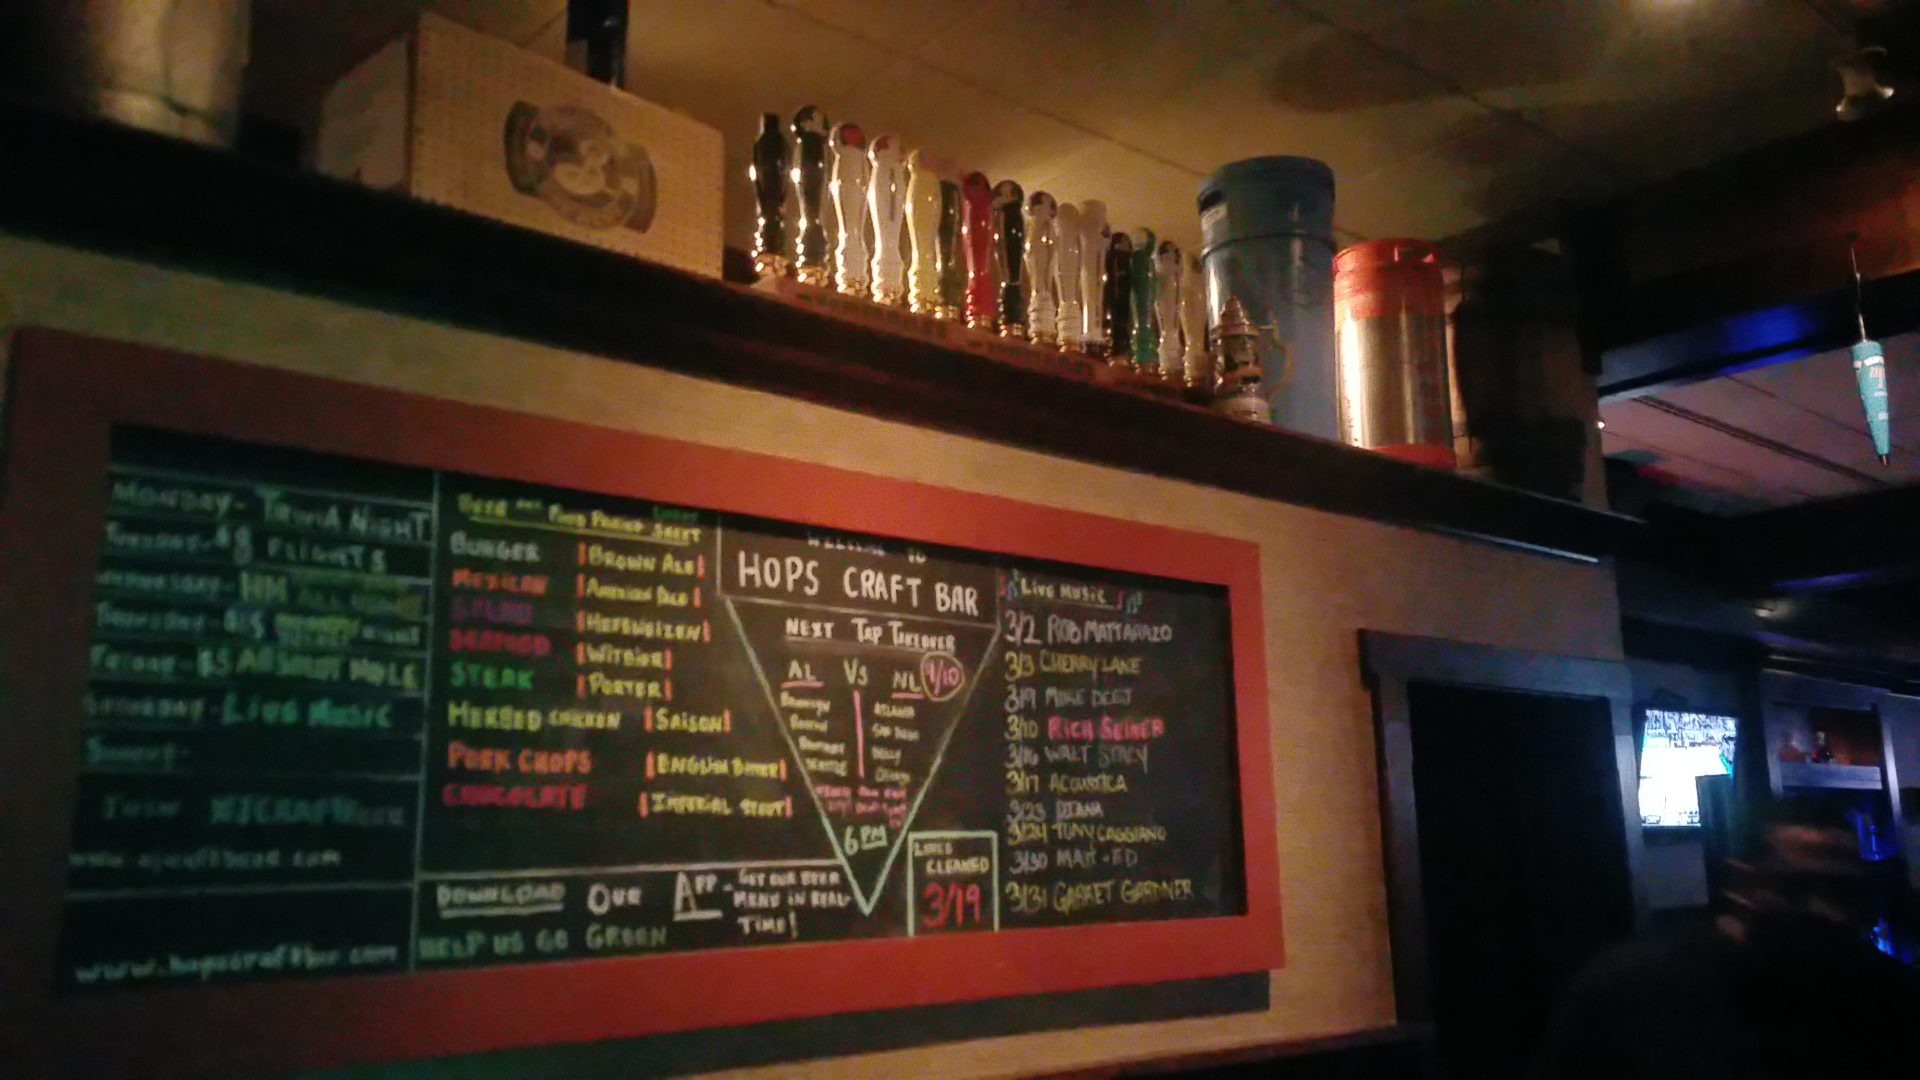 MONDAY - TRIVIA NIGHT
TUESDAY - $8 FLIGHTS
WEDNESDAY -
THURSDAY - $5
FRIDAY - $5
SATURDAY - LIVE MUSIC
SUNDAY -
JOIN NJCRAFTBEER
www.njcraftbeer.com
www.hopscraftbar.com
BEER AND FOOD PAIRING SHEET
BURGER [BROWN ALE]
MEXICAN [AMERICAN PALE]
SALAD [HEFEWEIZEN]
SEAFOOD [WITBIER]
STEAK [PORTER]
HERBED CHICKEN [SAISON]
PORK CHOPS [ENGLISH BITTER]
CHOCOLATE [IMPERIAL STOUT]
DOWNLOAD OUR APP - GET OUR BEER
MENU IN REAL-
TIME!
HELP US GO GREEN
WELCOME TO
HOPS CRAFT BAR
NEXT TAP TAKEOVER
AL VS NL 4/10
BROOKLYN ATLANTA
BOSTON SAN DIEGO
SEATTLE CHICAGO
6PM
LINES
CLEANED
3/19
LIVE MUSIC
3/2 ROB MATTARAZO
3/3 CHERRY LANE
3/9 MIKE DEEJ
3/10 RICH SEINER
3/16 WALT STACY
3/17 ACOUSTICA
3/23 DIANA
3/24 TONY CAGGIANO
3/30 MATT + ED
3/31 GARRET GARDNER